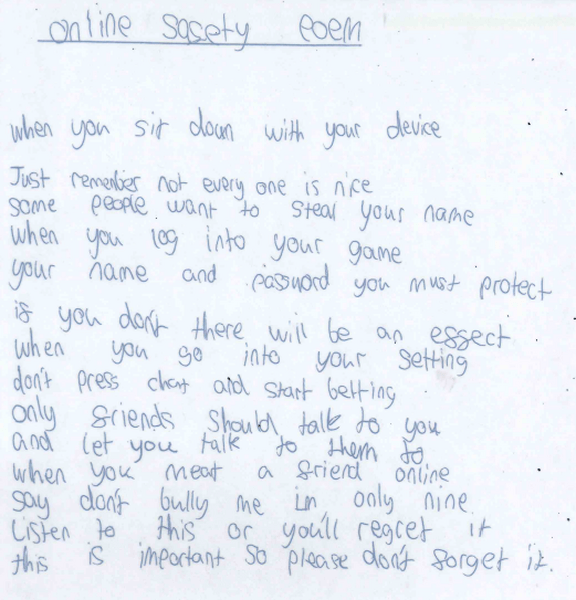 online safety poem
when you sit down with your device
Just remember not every one is nice
some people want to steal your name
when you log into your game
your name and password you must protect
if you don't there will be an effect
when you go into your setting
don't press chat and start betting
only friends should talk to you
and let you talk to them to
when you meat a friend online
say don't bully me im only nine
Listen to this or you'll regret it
this is important so please don't forget it.